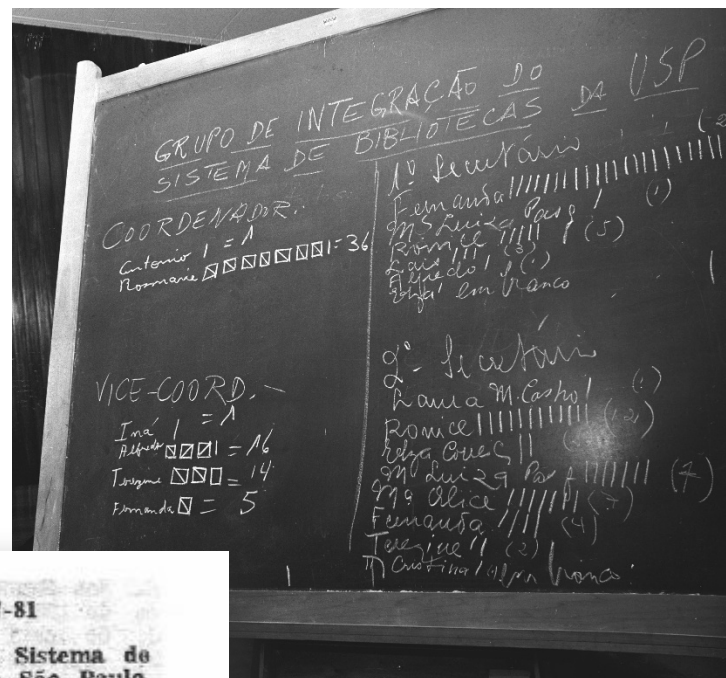 GRUPO DE INTEGRAÇÃO DO
SISTEMA DE BIBLIOTECAS DA USP
COORDENADOR.
Antonio | = 1
Rosmarie = 36
VICE-COORD. -
Iná | = 1
Alfredo = 16
= 14
Fernanda = 5
1º Secretário
Fernanda
Mª Luiza
Romice ||||| (5)
Lais ||| (3)
Alfredo | (1)
em branco
2º Secretário
Laura M. Castro | (1)
Romice
Elza
Mª Luiza ||||||| (7)
Mª Alice ||||||| (7)
Fernanda |||| (4)
Terezine || (2)
Cristina | branco
-81
Sistema de
São Paulo